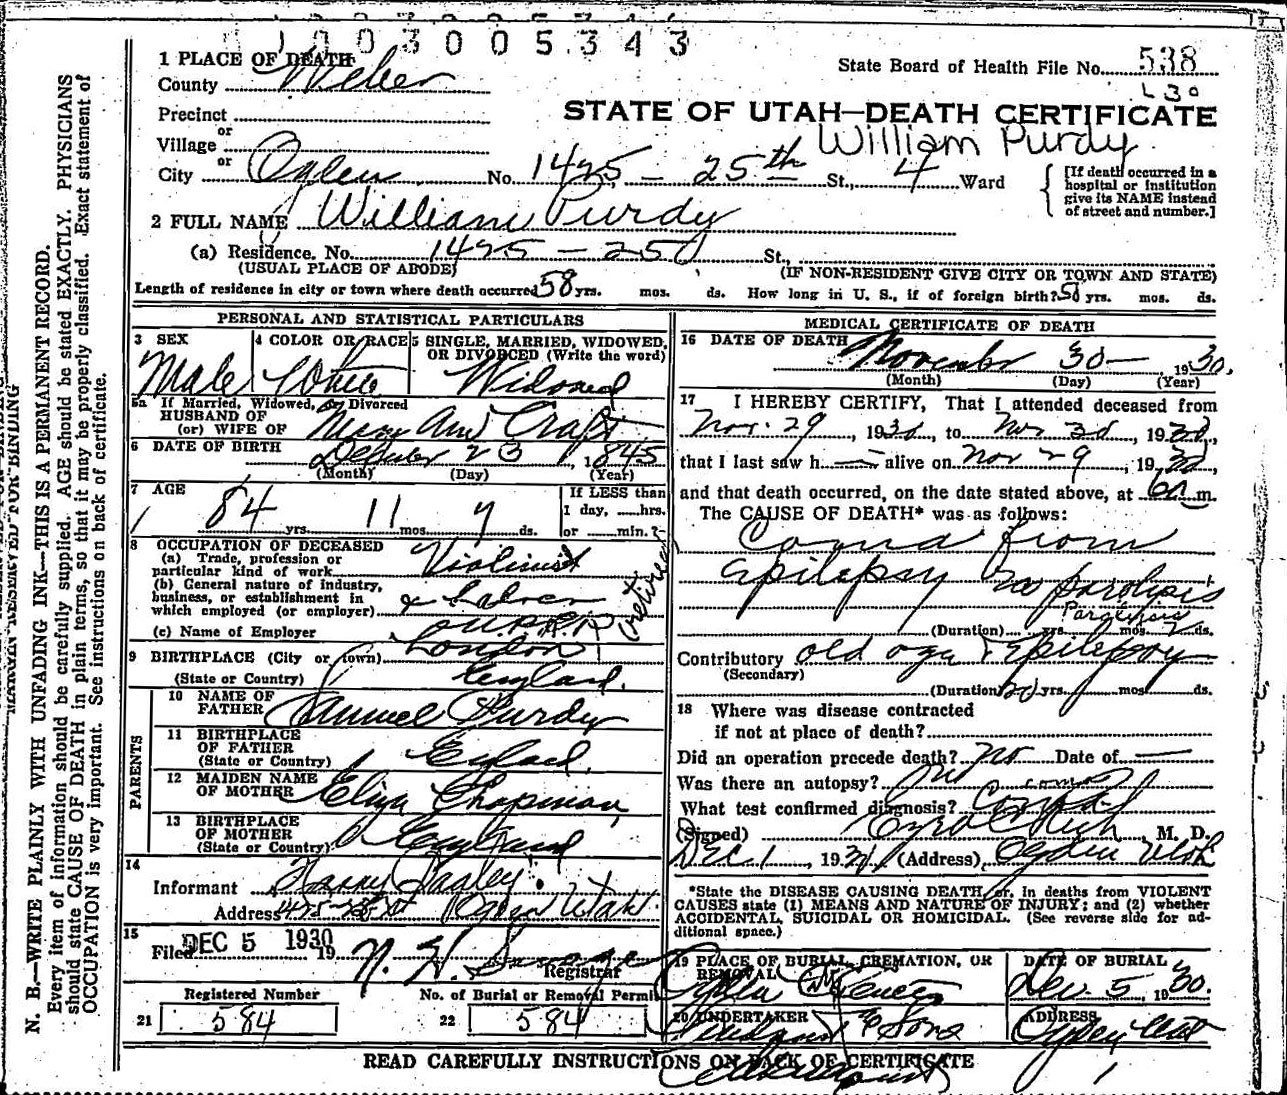 1003005343
1 PLACE OF DEATH
County Weber
State Board of Health File No. 538
L30
Precinct
STATE OF UTAH—DEATH CERTIFICATE
William Purdy
or
Village
or
City Ogden No. 1425 — 25th St., 4 Ward
[If death occurred in a
hospital or institution
give its NAME instead
of street and number.]
2 FULL NAME William Purdy
(a) Residence. No. 1425 — 25 St.,
(USUAL PLACE OF ABODE) (IF NON-RESIDENT GIVE CITY OR TOWN AND STATE)
Length of residence in city or town where death occurred 58 yrs. mos. ds. How long in U. S., if of foreign birth? 58 yrs. mos. ds.
PERSONAL AND STATISTICAL PARTICULARS
3 SEX
Male
4 COLOR OR RACE
White
5 SINGLE, MARRIED, WIDOWED,
OR DIVORCED (Write the word)
Widowed
5a If Married, Widowed, or Divorced
HUSBAND OF
(or) WIFE OF Mary Ann Craft
6 DATE OF BIRTH
December 23 1845
(Month) (Day) (Year)
7 AGE
84 yrs. 11 mos. 7 ds.
If LESS than
1 day, hrs.
or min.?
8 OCCUPATION OF DECEASED
(a) Trade, profession or
particular kind of work Violinist
(b) General nature of industry,
business, or establishment in
which employed (or employer) & Labor
(retired)
(c) Name of Employer O.U.R.R.
9 BIRTHPLACE (City or town) London
(State or Country) England.
PARENTS
10 NAME OF
FATHER Samuel Purdy
11 BIRTHPLACE
OF FATHER
(State or Country) England.
12 MAIDEN NAME
OF MOTHER Eliza Chapman
13 BIRTHPLACE
OF MOTHER
(State or Country) England
14
Informant Harry
Address 1425-25 St Ogden Utah
15
Filed DEC 5 1930 19 N. H. Savage
Registrar
Registered Number
21 584
No. of Burial or Removal Permit
22 584
MEDICAL CERTIFICATE OF DEATH
16 DATE OF DEATH
November 30 — 1930.
(Month) (Day) (Year)
17 I HEREBY CERTIFY, That I attended deceased from
Nov. 29, 1930, to Nov 30, 1930,
that I last saw h alive on Nov 29, 1930,
and that death occurred, on the date stated above, at 6 a m.
The CAUSE OF DEATH* was as follows:
Coma from
epilepsy no paralysis
(Duration) yrs. mos. ds.
Contributory old age & Epilepsy
(Secondary)
(Duration) 20 yrs. mos. ds.
18 Where was disease contracted
if not at place of death?
Did an operation precede death? No Date of —
Was there an autopsy? No
What test confirmed diagnosis? coma
(Signed) M. D.
Dec 1, 19 (Address) Ogden Utah
*State the DISEASE CAUSING DEATH, or, in deaths from VIOLENT
CAUSES state (1) MEANS AND NATURE OF INJURY; and (2) whether
ACCIDENTAL, SUICIDAL OR HOMICIDAL. (See reverse side for ad-
ditional space.)
19 PLACE OF BURIAL, CREMATION, OR
REMOVAL Ogden City Cemetery
DATE OF BURIAL
Dec. 5, 1930.
20 UNDERTAKER
Lindquist & Sons
ADDRESS
Ogden Utah
READ CAREFULLY INSTRUCTIONS ON BACK OF CERTIFICATE
MARGIN RESERVED FOR BINDING
N. B.—WRITE PLAINLY WITH UNFADING INK—THIS IS A PERMANENT RECORD.
Every item of information should be carefully supplied. AGE should be stated EXACTLY. PHYSICIANS
should state CAUSE OF DEATH in plain terms, so that it may be properly classified. Exact statement of
OCCUPATION is very important. See instructions on back of certificate.